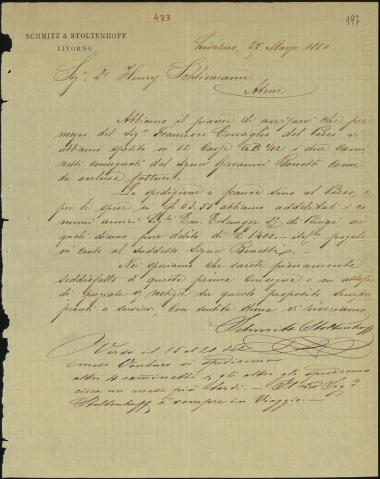 433
197
SCHMITZ & STOLTENHOFF
LIVORNO
Livorno, 28 Mago 1880
Sigr. Dr. Henry Schliemann
Atene
Abbiamo il piacere di avvisarvi che per
mezzo del Sigr. Francesco Consiglio del Pireo vi
abbiamo spedito in 12 Casse AB 1/12 due Cami
netti consegnati del Signor Giovanni Bonetti come
da acclusa fattura.
La spedizione è franca sino al Pireo, e
per le spese in 63,55 abbiamo addebitati i co
muni amici Sigri. Em. Erlanger & C. di Parigi
quali diamo pure debito di 1400.- pagate
in conto al suddetto Signor Bonetti.
Noi speriamo che sarete pienamente
soddisfatto di questa prima consegna e in attesa
di notizie su questo proposito sempre
pronti a servirvi. Con distinta stima vi riveriamo
Schmitz & Stoltenhoff
Verso il 15 al 20 del
mese venturo vi spediremo
altri 4 caminetti, gli altri gli spediremo
circa un mese più tardi. - Il Sigr.
Stoltenhoff è sempre in viaggio. -